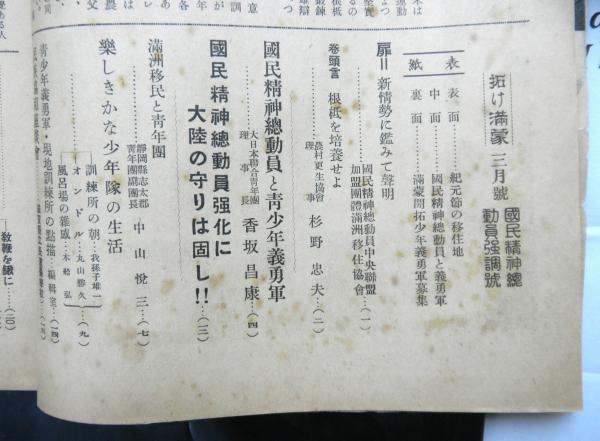 拓け滿蒙 三月號
國民精神總動員强調號
表紙
表面……紀元節の移住地
中面……國民精神總動員と義勇軍
裏面……滿蒙開拓少年義勇軍募集
扉=新情勢に鑑みて聲明
國民精神總動員中央聯盟
加盟團體滿洲移住協會…(一)
卷頭言 根柢を培養せよ
農村更生協會理事 杉野忠夫…(二)
國民精神總動員と靑少年義勇軍
大日本聯合靑年團理事長 香坂昌康…(四)
國民精神總動員强化に
大陸の守りは固し!!…(三)
滿洲移民と靑年團
靜岡縣志太郡靑年團副團長 中山悅三…(七)
樂しきかな少年隊の生活
訓練所の朝…我孫子雄一
オンドル…丸山勝久
風呂場の雜感…木船弘
(九)
靑少年義勇軍・現地訓練所の點描…編輯室…(一四)
敎鞭を鍬に…(二〇)